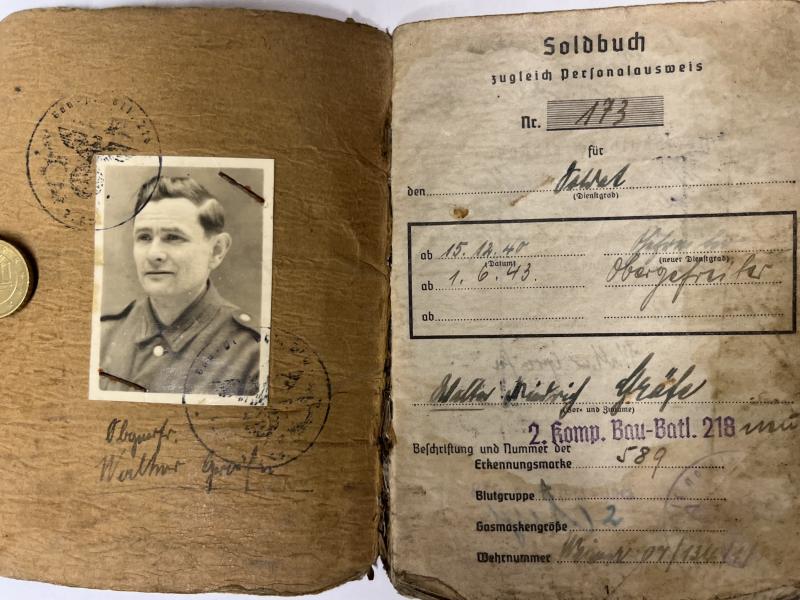 Obgnefr.
Walther
Soldbuch
zugleich Personalausweis
Nr. 173
für
den Soldat
(Dienstgrad)
ab 15.12.40
(Datum) (neuer Dienstgrad)
ab 1.6.43. Obergefreiter
ab
Walter Gräfe
(Vor- und Zuname)
2. Komp. Bau-Batl. 218 neu
Beschriftung und Nummer der
Erkennungsmarke 589
Blutgruppe
Gasmaskengröße 2
Wehrnummer
1